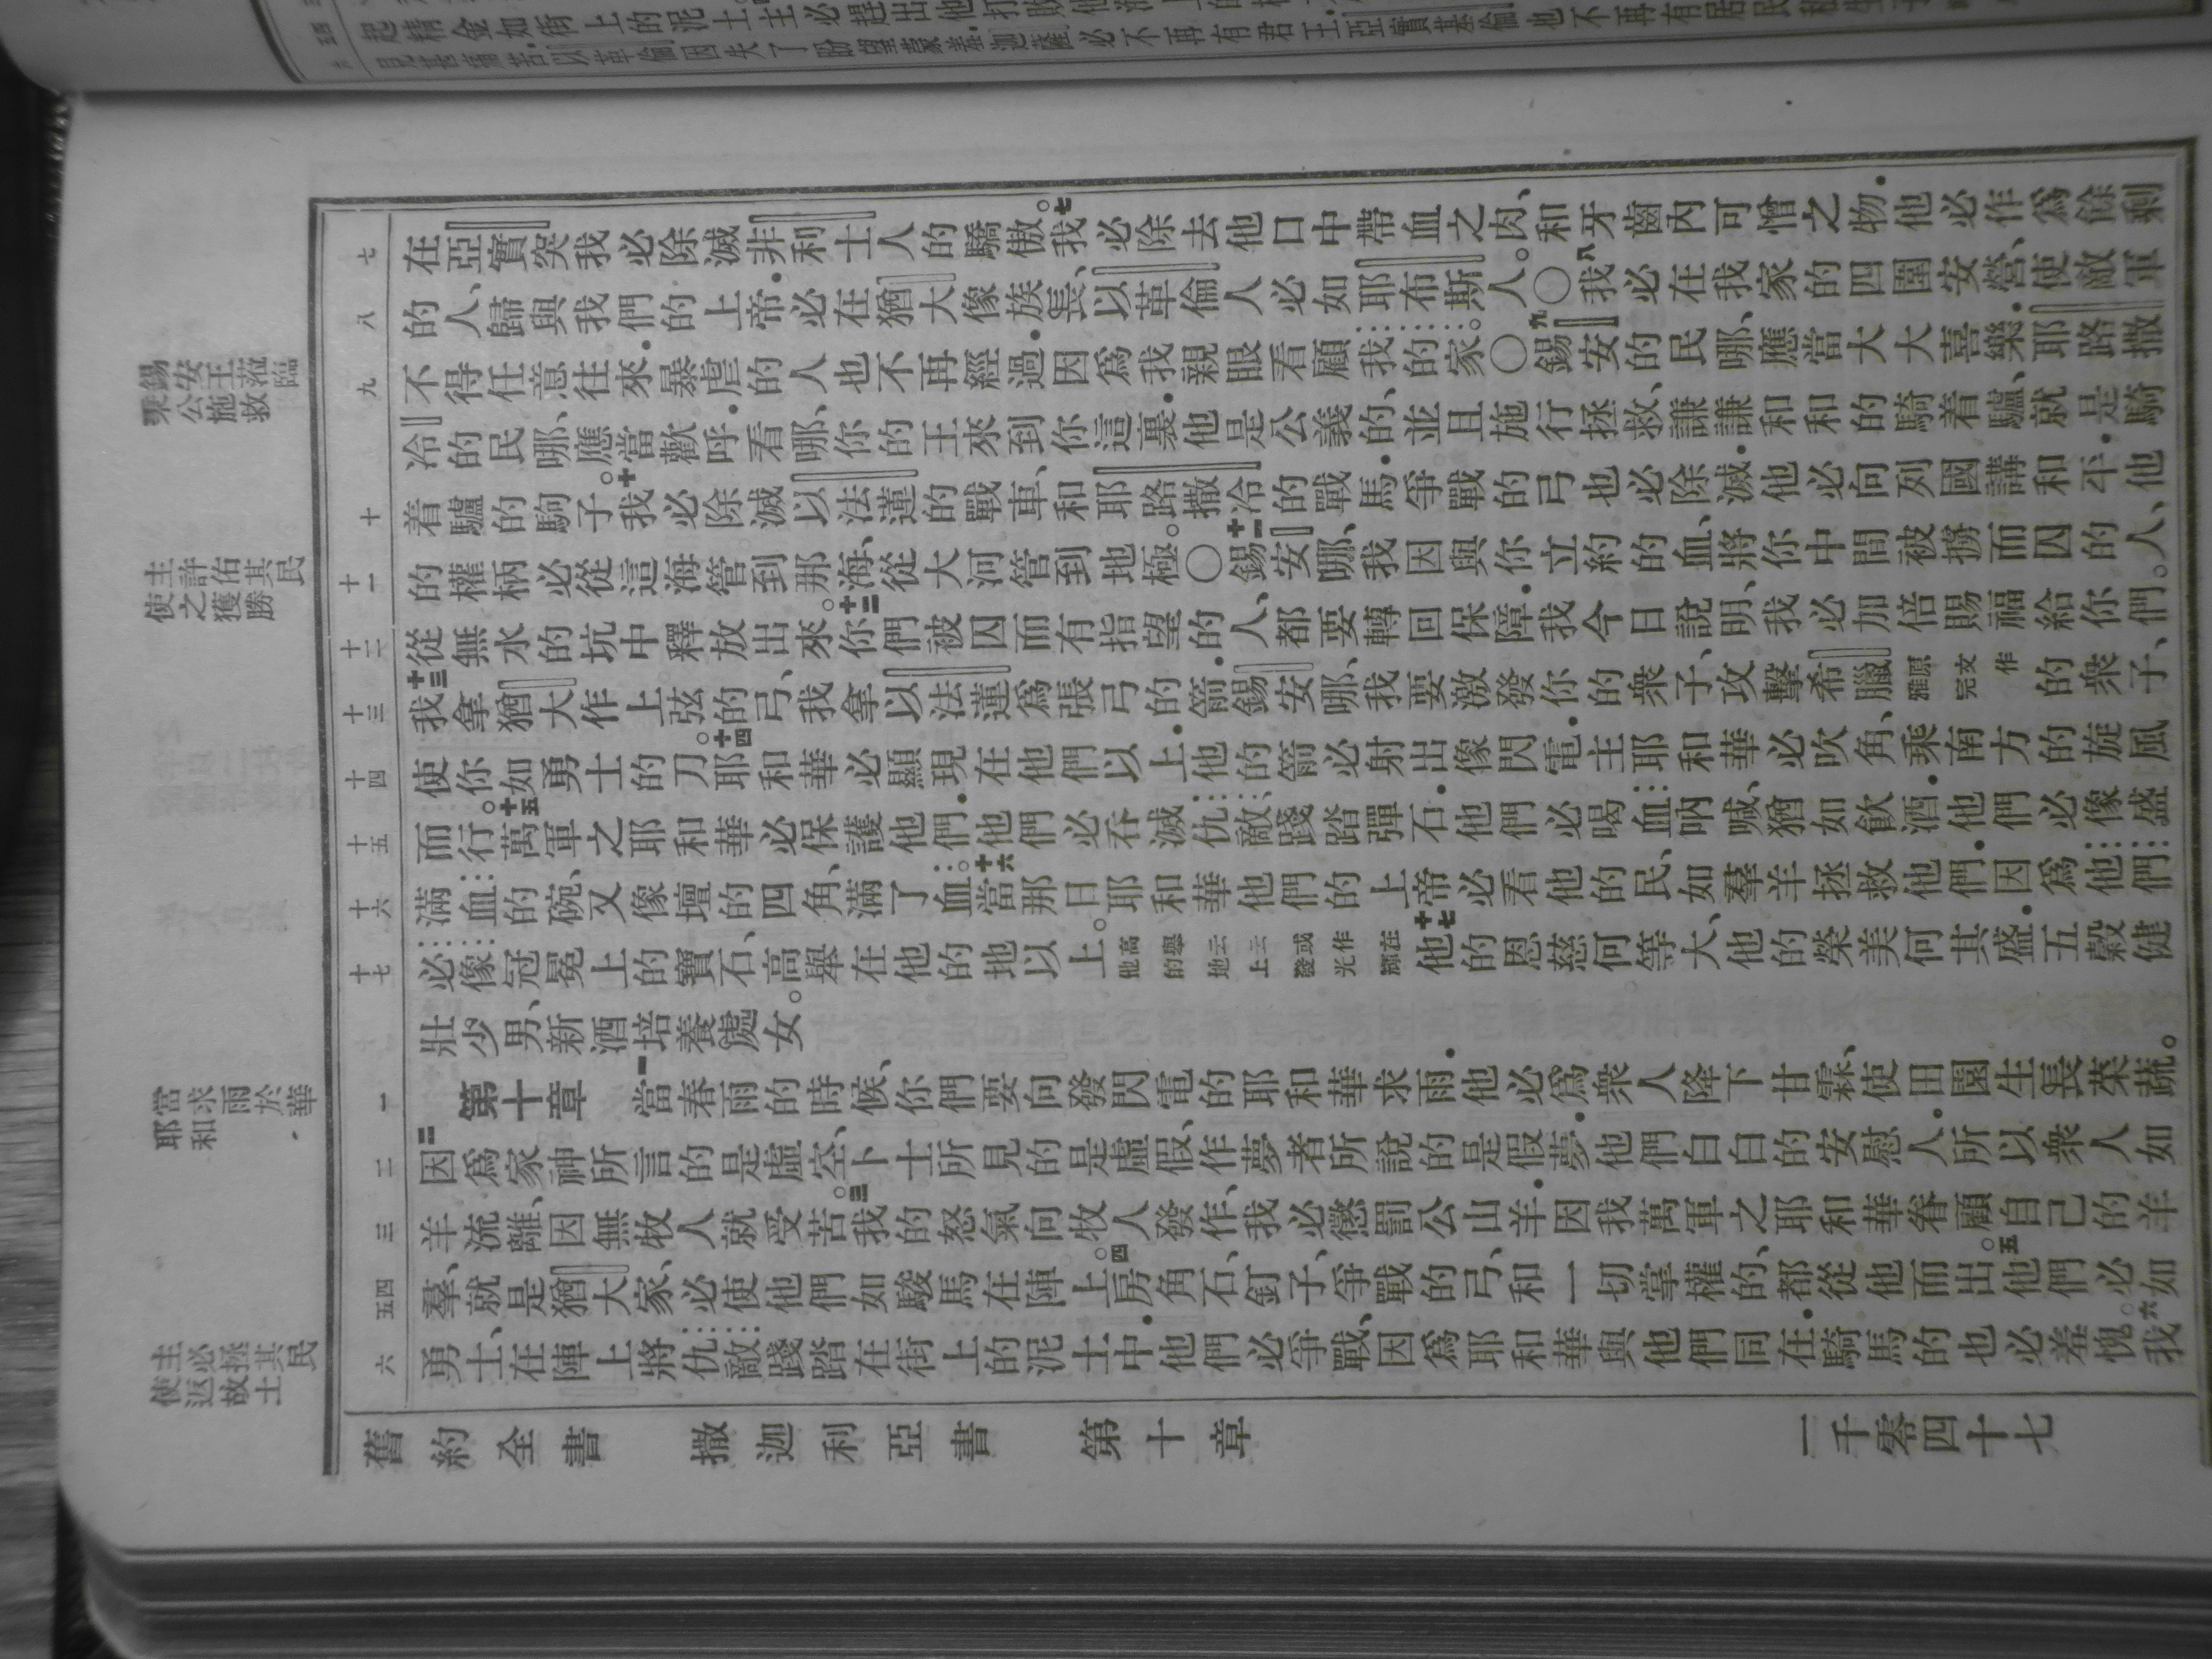 錫安王蒞臨
秉公施救
主許佑其民
使之獲勝
當求雨於
耶和華
主必拯其民
使返故土
七
八
九
十
十一
十二
十三
十四
十五
十六
十七
一
二
三
四
五
六
在亞實突我必除滅非利士人的驕傲。七我必除去他口中帶血之肉、和牙齒內可憎之物．他必作爲餘剩
的人、歸與我們的上帝．必在猶大像族長、以革倫人必如耶布斯人。○八我必在我家的四圍安營、使敵軍
不得任意往來．暴虐的人也不再經過．因爲我親眼看顧我的家。○九錫安的民哪、應當大大喜樂．耶路撒
冷的民哪、應當歡呼．看哪、你的王來到你這裏．他是公義的、並且施行拯救、謙謙和和的騎着驢、就是騎
着驢的駒子。十我必除滅以法蓮的戰車、和耶路撒冷的戰馬．爭戰的弓也必除滅．他必向列國講和平．他
的權柄必從這海管到那海、從大河管到地極。○十一錫安哪、我因與你立約的血、將你中間被擄而囚的人、
從無水的坑中釋放出來。十二你們被囚而有指望的人、都要轉回保障．我今日說明、我必加倍賜福給你們。
十三我拿猶大作上弦的弓、我拿以法蓮爲張弓的箭．錫安哪、我要激發你的衆子、攻擊希臘原文作雅完的衆子、
使你如勇士的刀。十四耶和華必顯現在他們以上．他的箭必射出像閃電．主耶和華必吹角、乘南方的旋風
而行。十五萬軍之耶和華必保護他們．他們必吞滅仇敵、踐踏彈石．他們必喝血吶喊、猶如飲酒．他們必像盛
滿血的碗、又像壇的四角、滿了血。十六當那日耶和華他們的上帝、必看他的民、如羣羊拯救他們．因爲他們
必像冠冕上的寶石、高舉在他的地以上。高舉云云或作在他的地上發光輝十七他的恩慈何等大、他的榮美何其盛．五穀健
壯少男、新酒培養處女。
第十章　一當春雨的時候、你們要向發閃電的耶和華求雨．他必爲衆人降下甘霖、使田園生長菜蔬。
二因爲家神所言的是虛空、卜士所見的是虛假、作夢者所說的是假夢．他們白白的安慰人．所以衆人如
羊流離、因無牧人就受苦。三我的怒氣向牧人發作、我必懲罰公山羊．因我萬軍之耶和華眷顧自己的羊
羣、就是猶大家、必使他們如駿馬在陣上。四房角石、釘子、爭戰的弓、和一切掌權的、都從他而出。五他們必如
勇士、在陣上將仇敵踐踏在街上的泥土中．他們必爭戰、因爲耶和華與他們同在．騎馬的也必羞愧。六我
舊約全書　撒迦利亞書　第十章　一千零四十七